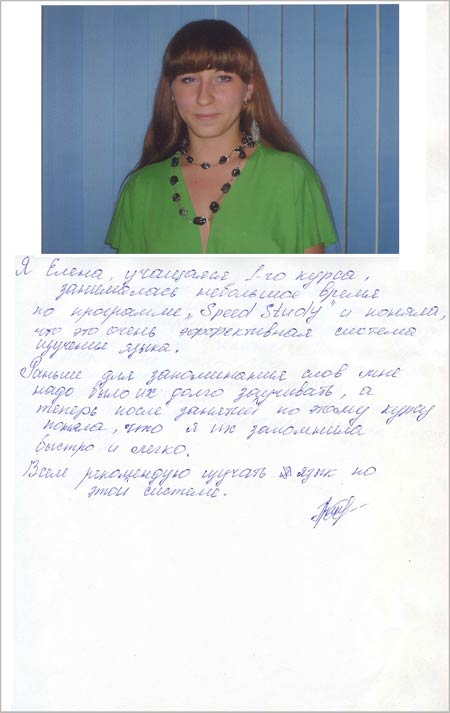 Я Елена, учащаяся 1-го курса,
занималась небольшое время
по программе „Speed Study" и поняла,
что это очень эффективная система
изучения языка.
Раньше для запоминания слов мне
надо было их долго заучивать, а
теперь после занятий по этому курсу
поняла, что я их запомнила
быстро и легко.
Всем рекомендую изучать язык по
этой системе.